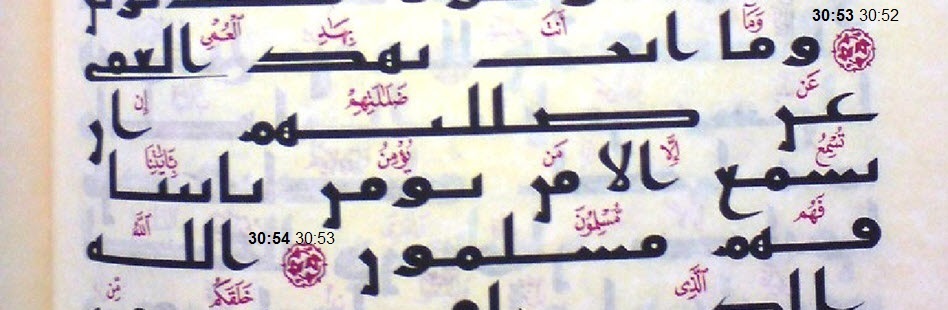 30:53 30:52
وَمَآ أَنتَ بِهَٰدِ ٱلْعُمْىِ
وما انت بهد العمى
عَن ضَلَٰلَتِهِمْ إِن
عن ضللتهم ان
تُسْمِعُ إِلَّا مَن يُؤْمِنُ بِـَٔايَٰتِنَا
تسمع الا من يومن بايتنا
فَهُم مُّسْلِمُونَ ٱللَّهُ
30:54 30:53
فهم مسلمون الله
ٱلَّذِى خَلَقَكُم مِّن